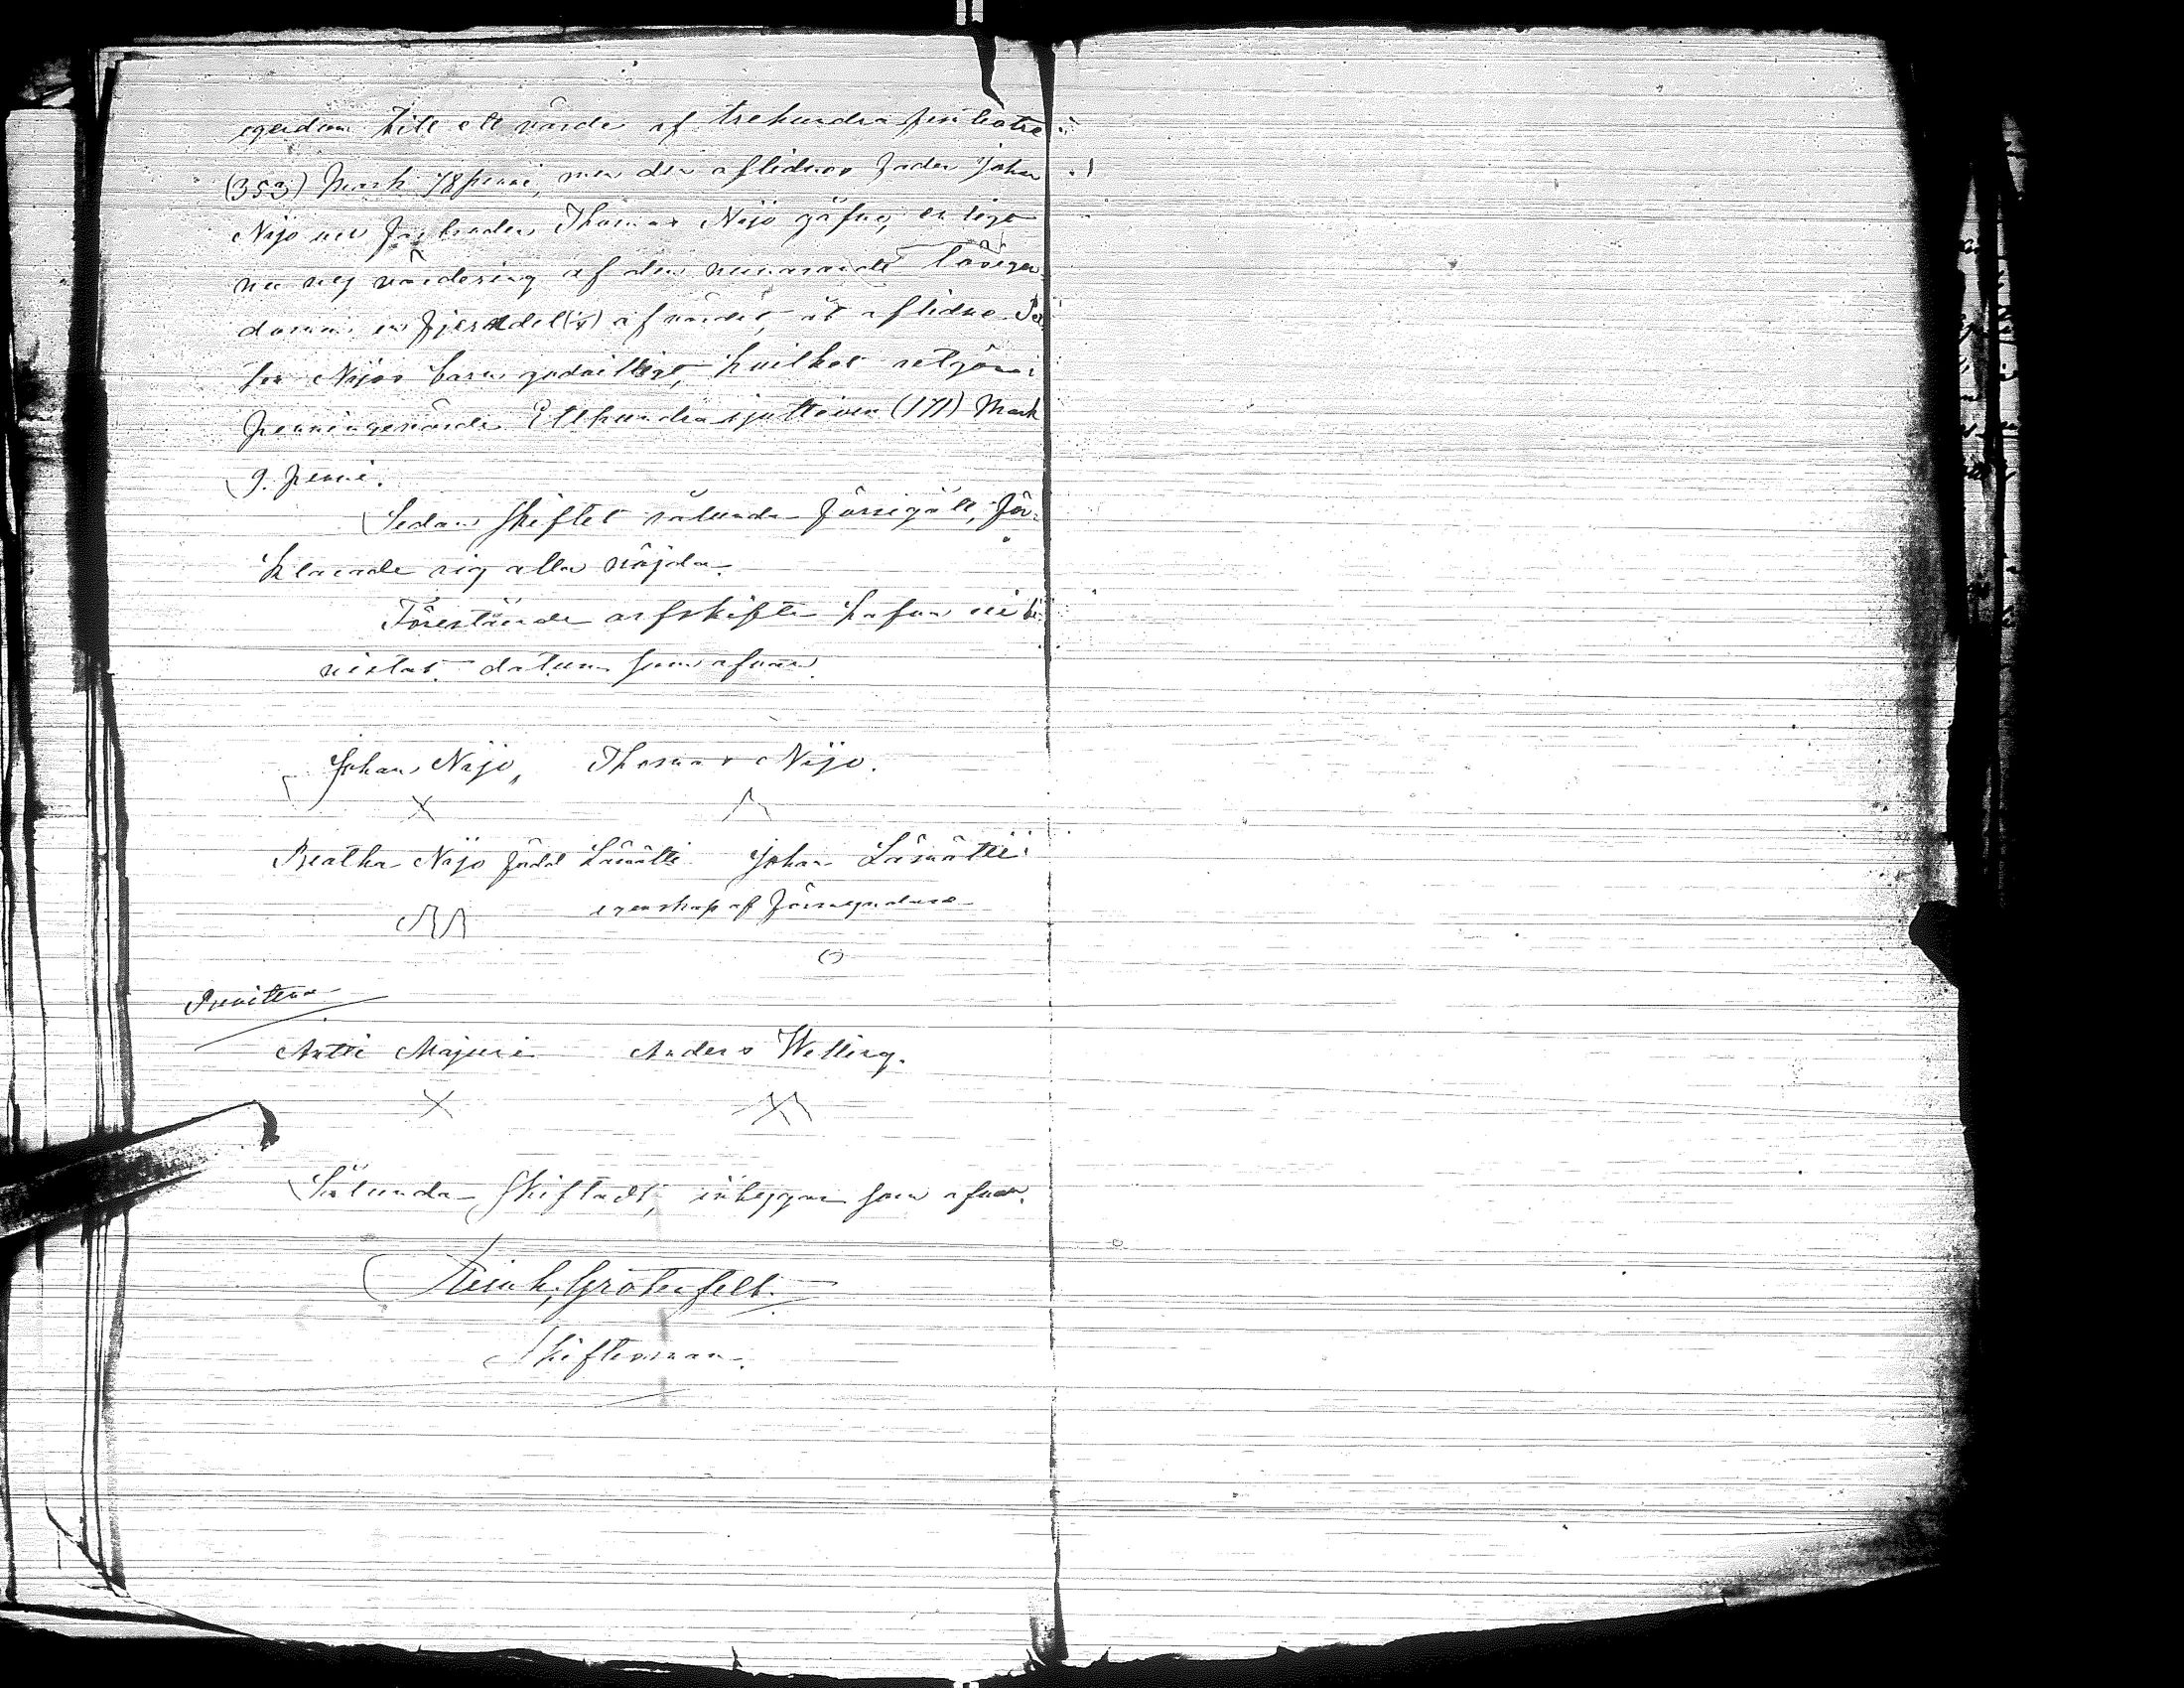 egendom till ett värde af trehundra femtiotre
(353) Mark 78 penni, men den aflidnes fader Johan
Nijo och farbroder Thomas Nijo gåfvo, enligt
nu ny värdering af den nuvarande lösegen-
domen en fjerdedel (¼) af värdet, åt aflidne Pet-
ter Nijos barn godvilligt, hvilket utgöra i
penningevärde Etthundra sjuttioen (171) Mark
9. penni.
Sedan skiftet sålunda försigått, för-
klarade sig alla nöjda.
Förestående arfskifte hafva vi be-
vistat. datum som ofvan.
Johan Nijo, Thomas Nijo.
Beatha Nijo född Lämätti Johan Lämätti i
egenskap af förmyndare
O
Bevittna
Antti Majuri Anders Welling.
Sålunda skiftadt, intygar som ofvan.
Heink. Grotenfelt.
Skiftesman.